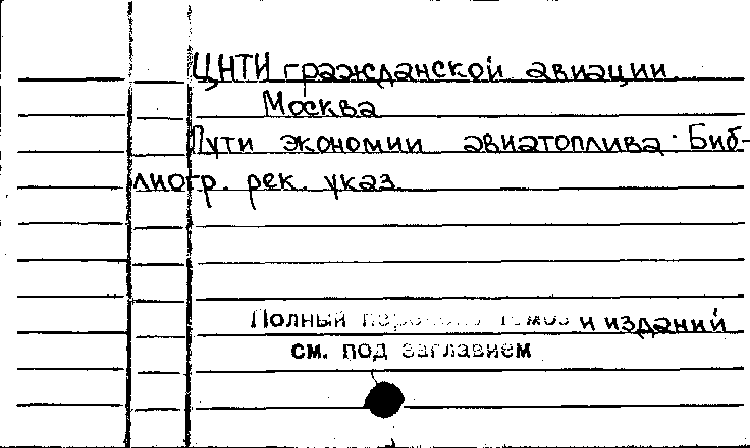 ЦНТИ гражданской авиации
Москва
Пути экономии авиатоплива: Биб-
лиогр. рек. указ.
Полный и изданий
см. под заглавием